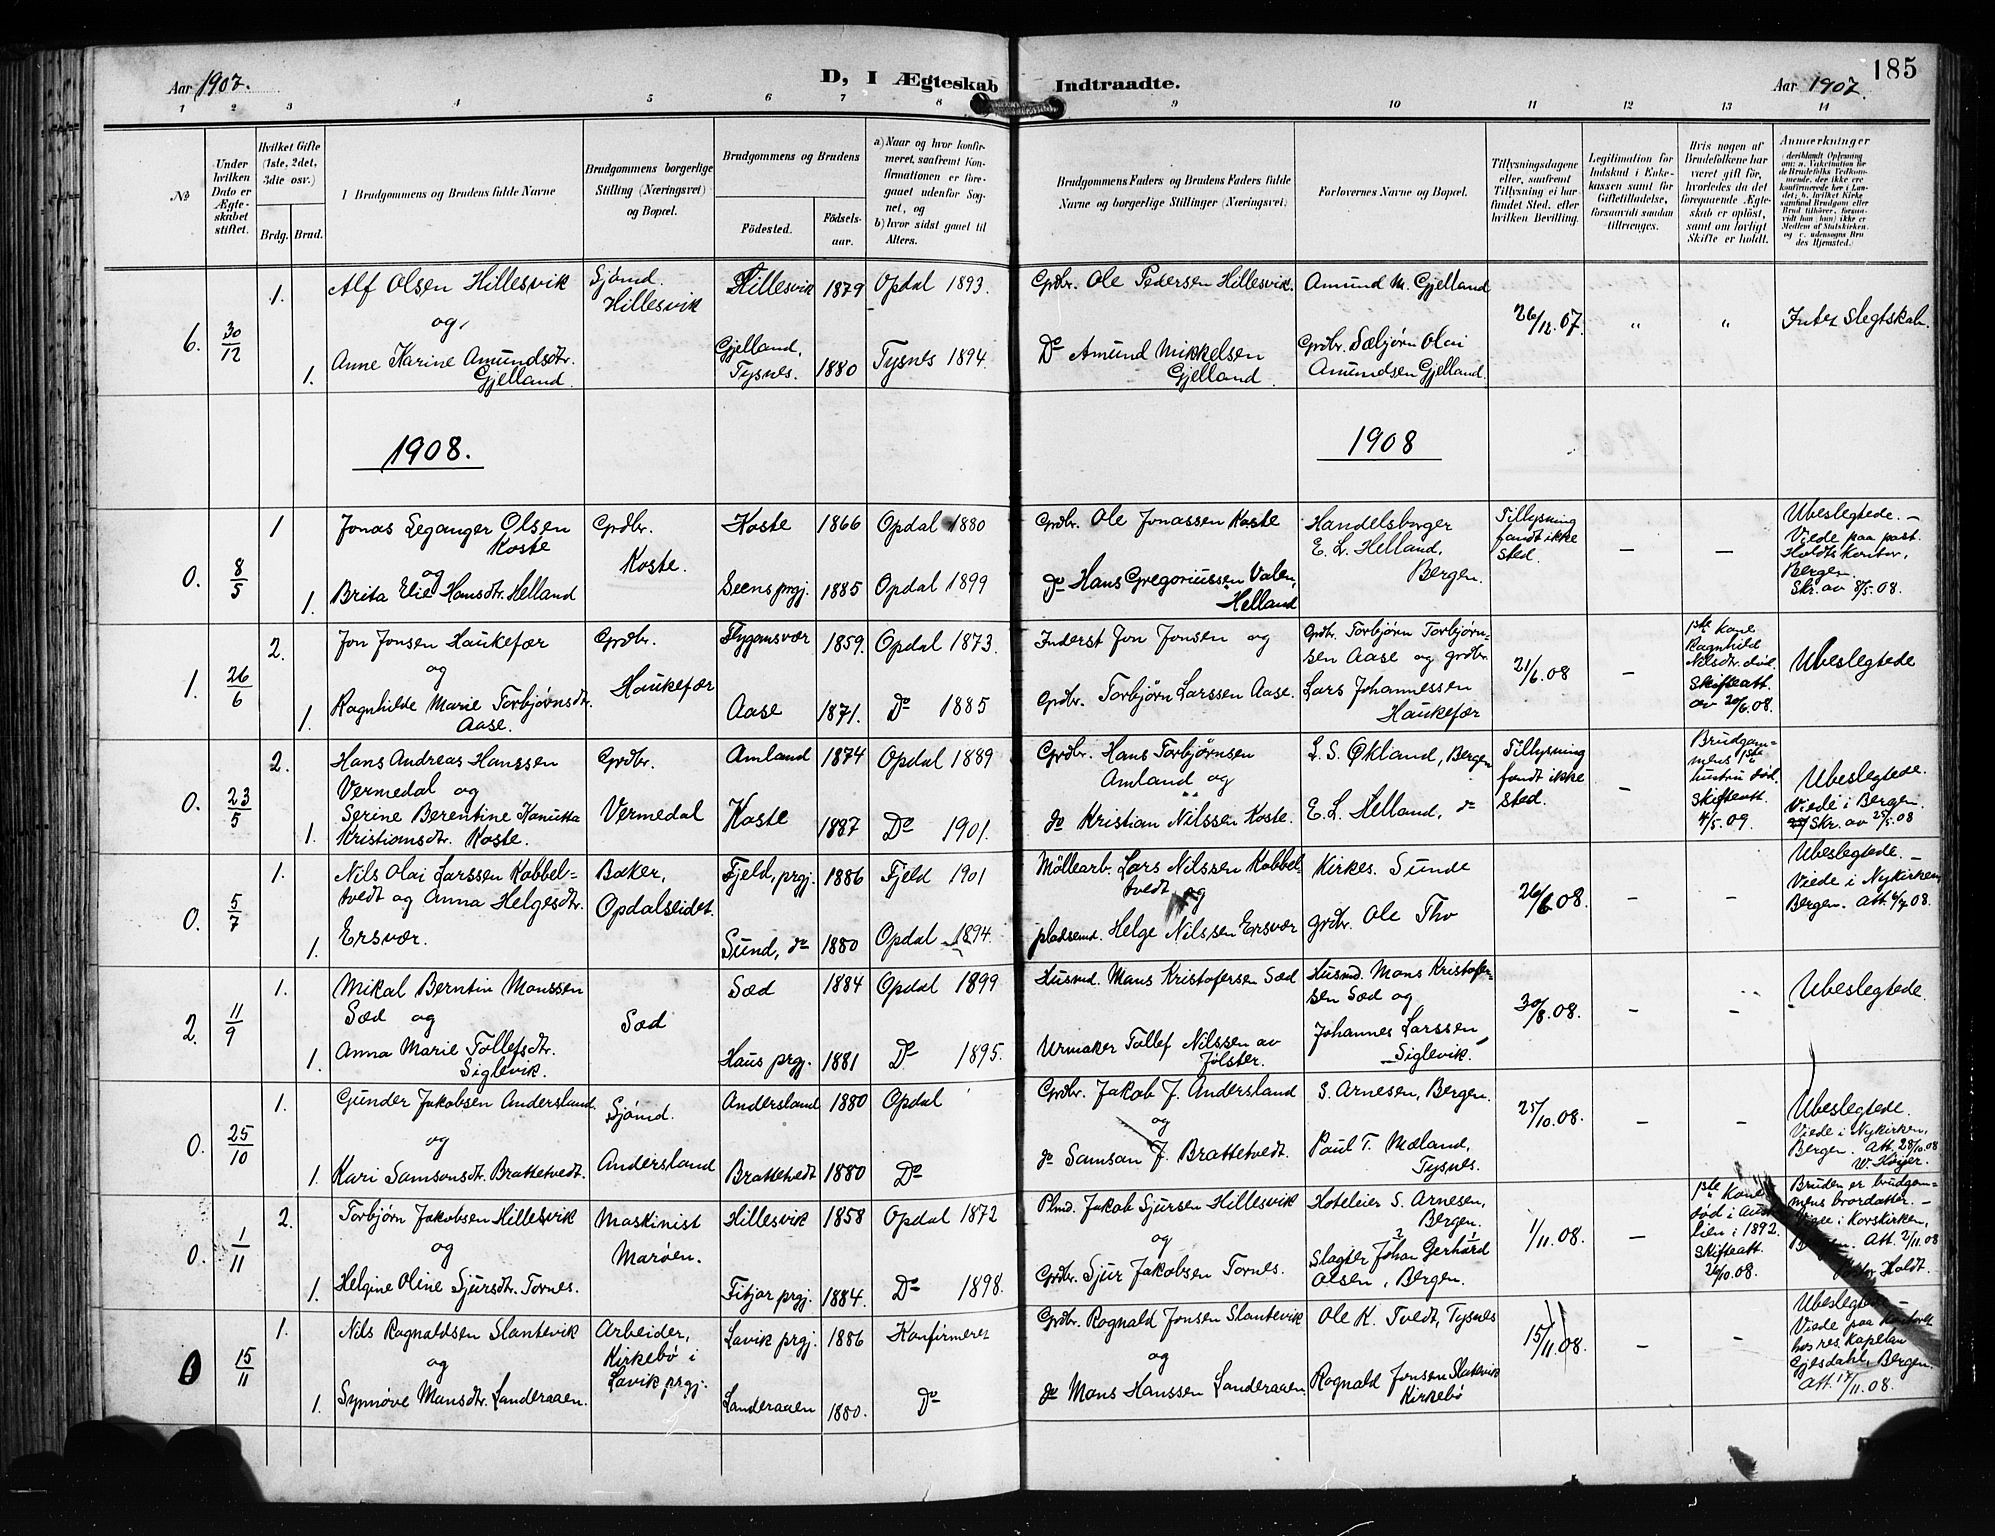 185
Aar 1907.
D, I Ægteskab Indtraadte.
Aar 1907.
1 2 3 4 5 6 7 8 9 10 11 12 13 14
No
Under hvilken Dato er Ægteskabet stiftet.
Hvilket Gifte (1ste, 2det, 3die osv.)
Brdg. Brud.
Brudgommens og Brudens fulde Navne
Brudgommens borgerlige Stilling (Næringsvei) og Bopæl.
Brudgommens og Brudens
Födested.
Födsels-aar.
a) Naar og hvor konfirmeret, saafremt Konfirmationen er foregaaet udenfor Sognet, og
b) hvor sidst gaaet til Alters.
Brudgommens Faders og Brudens Faders fulde Navne og borgerlige Stillinger (Næringsvei).
Forlovernes Navne og Bopæl.
Tillysningsdagene eller, saafremt Tillysning ei har fundet Sted, efter hvilken Bevilling.
Legitimation for Indskud i Enkekassen samt for Giftetilladelse, forsaavidt saadan tiltrænges.
Hvis nogen af Brudefolkene har været gift før, hvorledes da det foregaaende Ægteskab er opløst, samt om lovligt Skifte er holdt.
Anmærkninger
6. 30/12 1. Alf Olsen Hillesvik
og
1. Anne Karine Amundsdtr. Gjelland.
Sjømd. Hillesvik
Hillesvik 1879 Opdal 1893.
Gjelland, Tysnes. 1880 Tysnes 1894.
Grdbr. Ole Pedersen Hillesvik.
Do Amund Mikkelsen Gjelland.
Amund M. Gjelland
Grdbr. Sæbjørn Olai Amundsen Gjelland.
26/12.07. " "
Intet Slegtskab.
1908.
1908
0. 8/5 1 Jonas Leganger Olsen Koste
og
1. Brita Elie Hansdtr. Helland
Grdbr. Koste.
Koste 1866 Opdal 1880
Seens prgj. 1885 Opdal 1899
Grdbr. Ole Jonassen Koste
do Hans Gregoriussen Valen, Helland
Handelsborger E. L. Helland, Bergen.
Tillysning fandt ikke sted. – –
Ubeslegtede. – Viede paa past. Holdts kontor, Bergen. Skr. av 8/5.08.
1. 26/6 2. Jon Jonsen Haukefær
og
1. Ragnhilde Marie Torbjørnsdtr. Aase.
Grdbr. Haukefær
Flygansvær 1859. Opdal 1873.
Aase 1871. Do 1885
Inderst Jon Jonsen og
Grdbr. Torbjørn Larssen Aase.
Grdbr. Torbjørn Torbjørnsen Aase og grdbr. Lars Johannessen Haukefær
21/6.08 –
1ste Kone Ragnhild Nilsdtr. død. Skifteatt. av 20/6.08.
Ubeslegtede
0. 23/5 2. Hans Andreas Hanssen Vermedal og
1. Serine Berentine Kanutta Kristiansdtr. Koste.
Grdbr. Vermedal
Amland 1874 Opdal 1889
Koste 1887 Do 1901.
Grdbr. Hans Torbjørnsen Amland og
do Kristian Nilssen Koste.
L. S. Økland, Bergen
E. L. Helland, do
Tillysning fandt ikke sted. –
Brudgommens 1ste hustru død. Skifteatt. 4/5.09.
Ubeslegtede. Viede i Bergen. Skr. av 25/5.08
0. 5/7 1. Nils Olai Larssen Kobbeltvedt og Anna Helgesdtr.
1. Ersvær.
Baker, Opdalseidet.
Fjeld, prgj. 1886 Fjeld 1901
Sund, do 1880 Opdal 1894.
Møllearb. Lars Nilssen Kobbeltvedt og
pladsemd. Helge Nilssen Ersvær
Kirkes. Sunde
grdbr. Ole Tho
26/6.08. – –
Ubeslegtede. – Viede i Nykirken, Bergen. Att. 6/7.08.
2. 11/9 1. Mikal Berntin Monssen Sæd og
1. Anna Marie Tollefsdtr. Siglevik.
Sæd
Sæd 1884 Opdal 1899
Haus prgj. 1881 Do 1895.
Husmd. Mons Kristofersen Sæd
Urmaker Tollef Nilssen av Jølster.
Husmd. Mons Kristofersen Sæd og
Johannes Larssen Siglevik.
30/8.08. – –
Ubeslegtede.
0. 25/10 1. Gunder Jakobsen Andersland
og
1. Kari Samsonsdtr. Brattetvedt.
Sjømd. Andersland
Andersland 1880 Opdal
Brattetvedt 1880 Do
Grdbr. Jakob J. Andersland
og
do Samson J. Brattetvedt.
S. Arnesen, Bergen.
Paul T. Mæland, Tysnes.
25/10.08. – –
Ubeslegtede. Viede i Nykirken, Bergen. Att. 28/10.08 W. Höyer.
0. 1/11 2. Torbjørn Jakobsen Hillesvik
og
1. Helgine Oline Sjursdtr. Tornes.
Maskinist Marøen.
Hillesvik 1858 Opdal 1872
Fitjar prgj. 1884. Do 1898.
Plmd. Jakob Sjursen Hillesvik
og
Grdbr. Sjur Jakobsen Tornes.
Hoteleier S. Arnesen, Bergen.
Slagter Johan Gerhard Olsen, Bergen.
1/11.08. –
1ste Kone død i Australien i 1892. Skifteatt. 26/10.08.
Bruden er brudgommens brordatter. – Viede i Korskirken, Bergen. Att. 2/11.08 Pastor Holdt.
0 15/11 1. Nils Ragnaldsen Slantevik
og
1. Synnøve Mansdtr. Sanderaaen.
Arbeider, Kirkebø i Lavik prgj.
Lavik prgj. 1886 Konfirmeret
Sanderaaen 1880. Do
Grdbr. Ragnald Jonsen Slantevik
og
do Mons Hanssen Sanderaaen
Ole K. Tvedt, Tysnes
Ragnald Jonsen Slatevik Kirkebø
15/11.08. – –
Ubeslegtede – Viede paa Kontoret hos res. Kapelan Gjesdahl, Bergen. Att. 17/11.08.